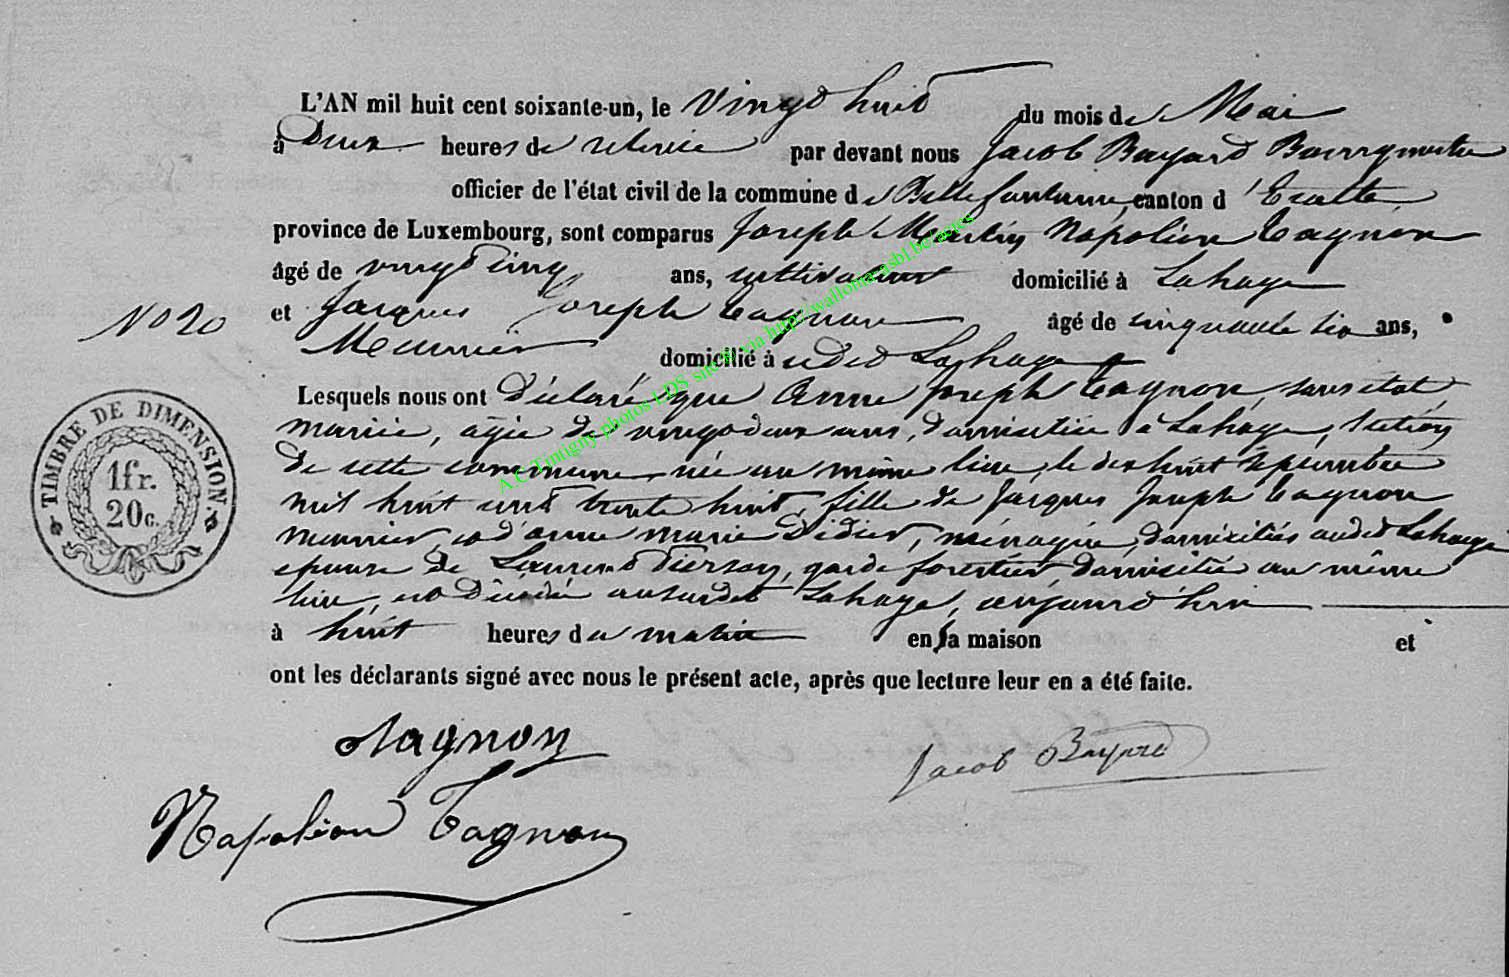 L'AN mil huit cent soixante-un, le vingt huit du mois de Mai
à Deux heures de relevée par devant nous Jacob Bayard Bourgmestre
officier de l'état civil de la commune de Bellefontaine, canton d'Etalle,
province de Luxembourg, sont comparus Joseph Martin Napoléon Tagnon
âgé de vingt cinq ans, cultivateur domicilié à Lahage
No 20 et Jacques Joseph Tagnon âgé de cinquante six ans,
Meunier domicilié à udit Lahage
Lesquels nous ont Déclaré que Anne Joseph Tagnon, sans état,
mariée, agée de vingt deux ans, domiciliée à Lahage, section
de cette commune, née au même lieu, le dix huit septembre
mil huit cent trente huit, fille de Jacques Joseph Tagnon
meunier et d'anne marie Didier, ménagère, domiciliés audit Lahage
epouse de Laurent Pierson, garde forestier, domicilié au même
lieu, est Décédée au susdit Lahage, aujourd'hui
à huit heures du matin en sa maison et
ont les déclarants signé avec nous le présent acte, après que lecture leur en a été faite.
JTagnon
Jacob Bayard
Napoléon Tagnon
TIMBRE DE DIMENSION.
1fr.
20c.
A.C. Tintigny photos LDS sur le via http://wallonia-asbl.be/actes